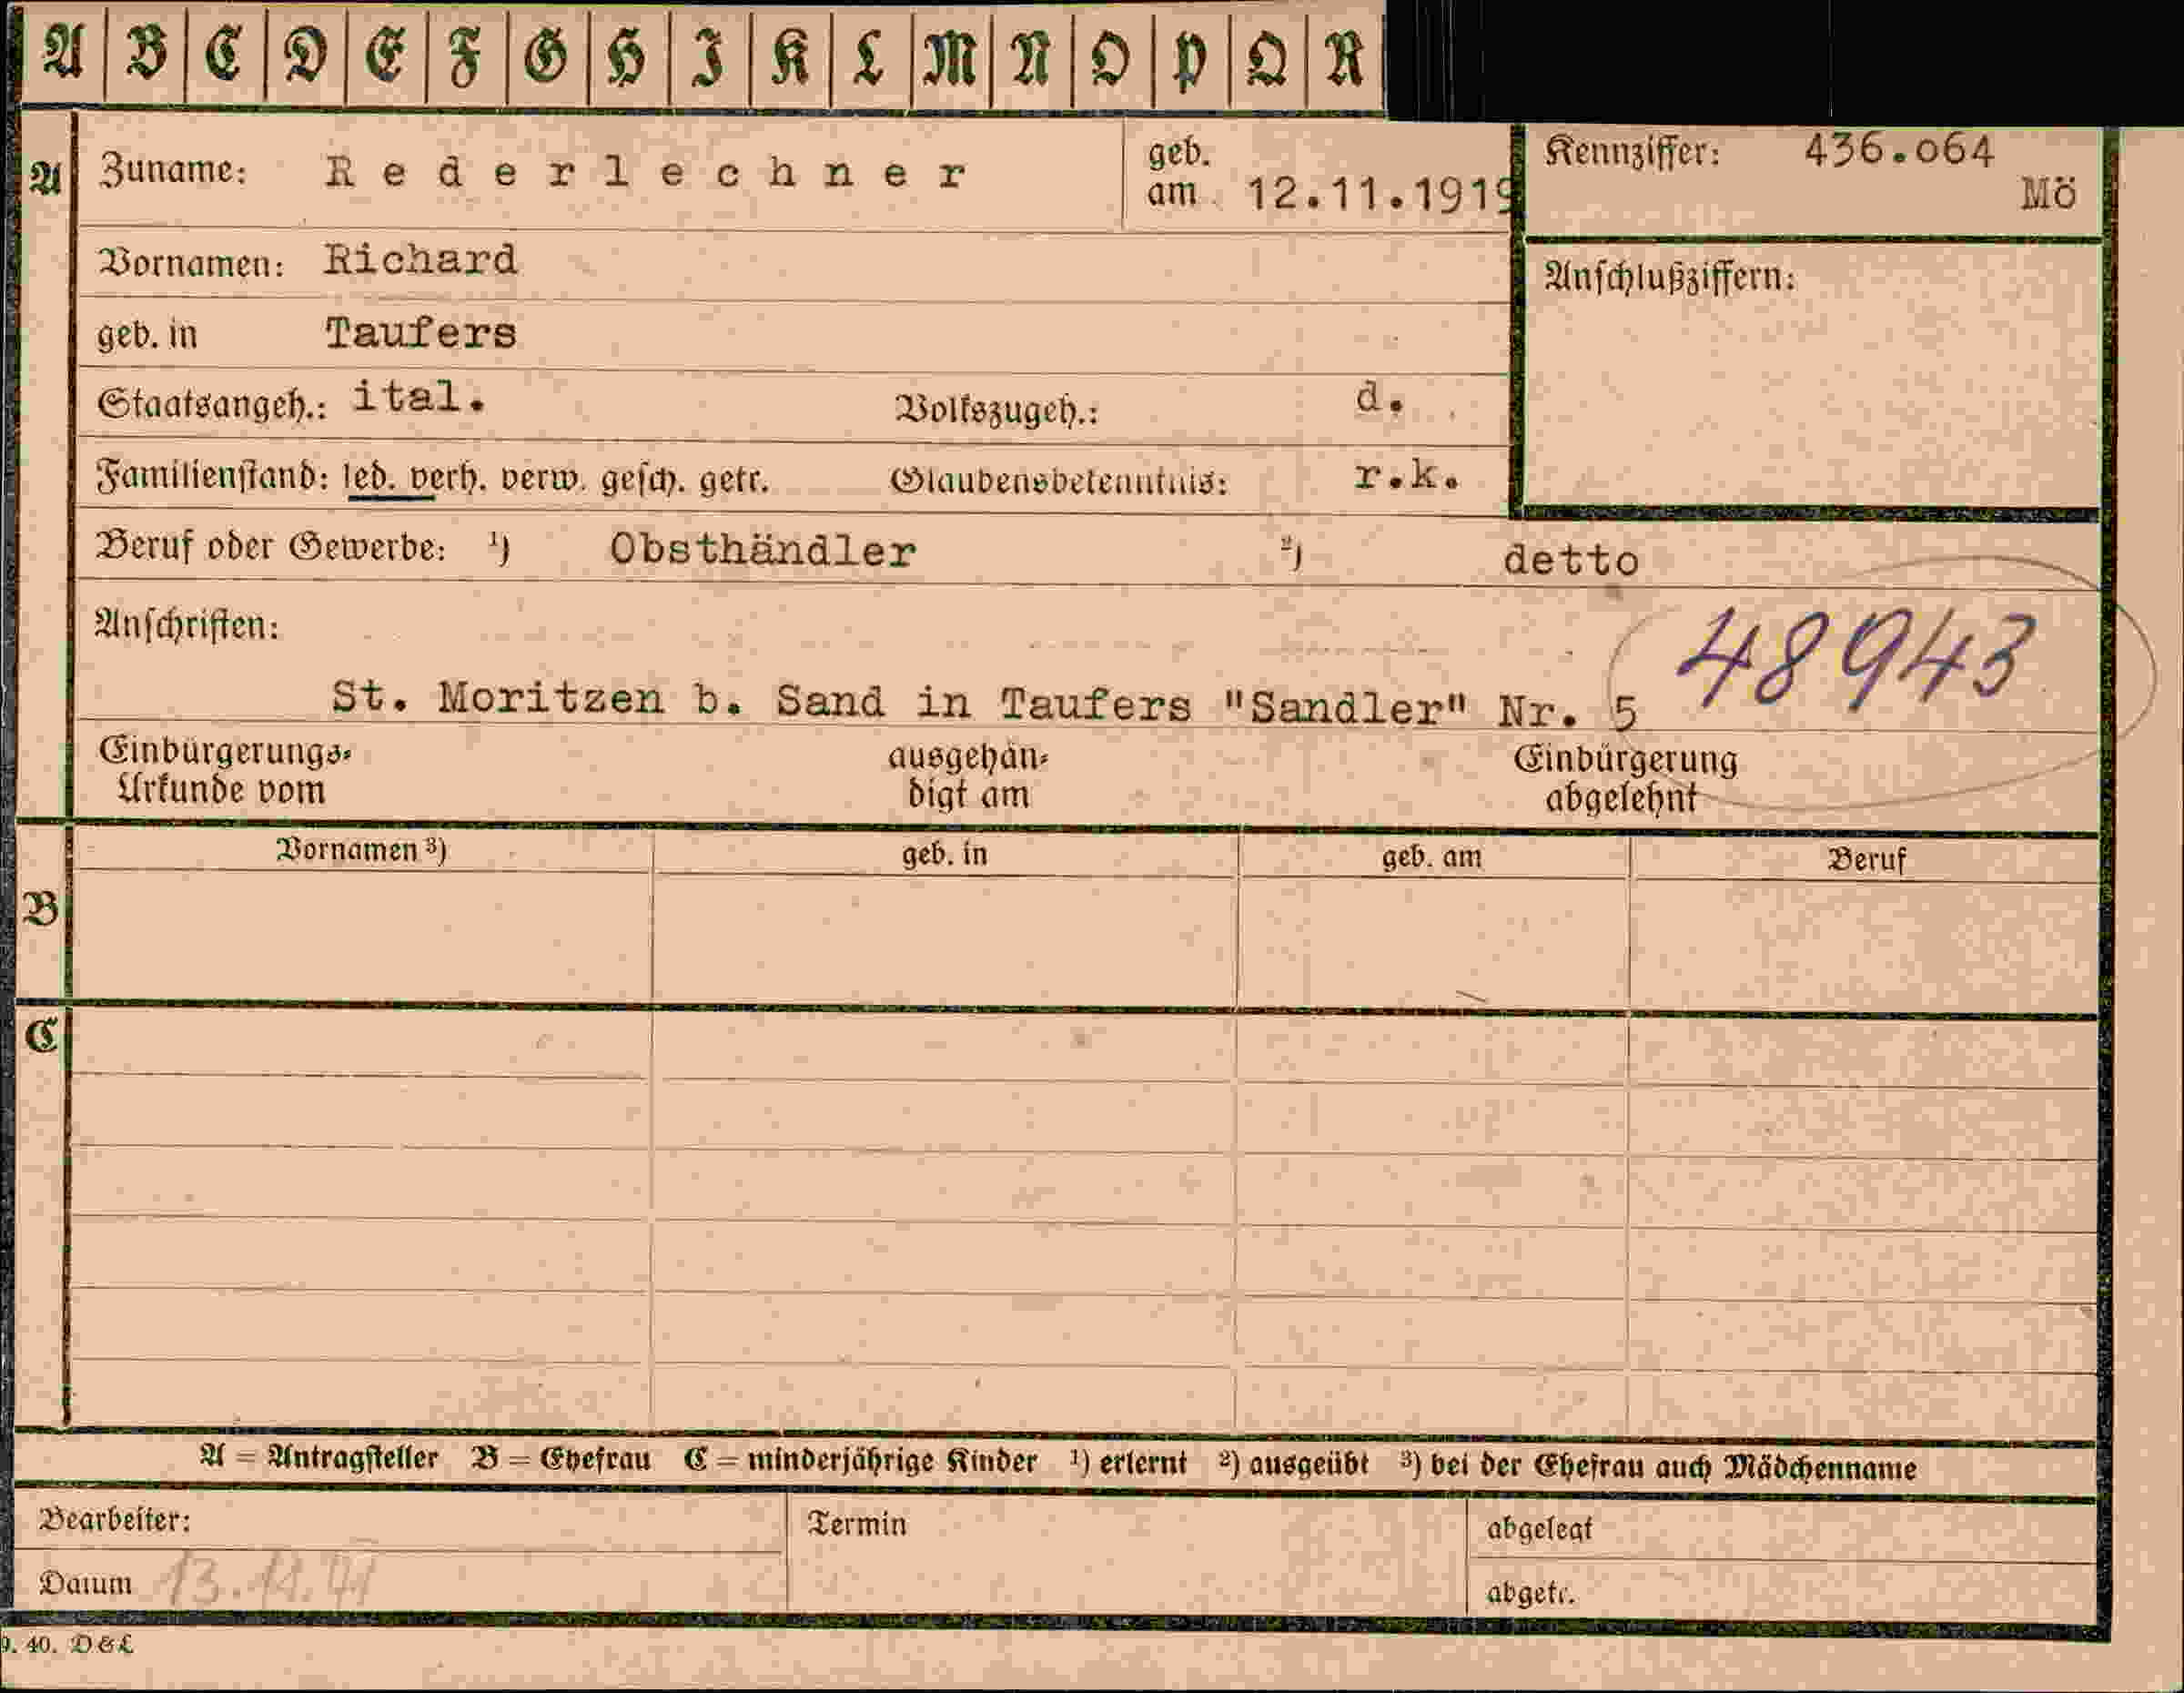 A B C D E F G H I K L M N O P Q R
A Zuname: Rederlechner geb. am 12.11.1919 Kennziffer: 436.064
Mö
Vornamen: Richard Anschlußziffern:
geb. in Taufers
Staatsangeh.: ital. Volkszugeh.: d.
Familienstand: led. verh. verw. gesch. getr. Glaubensbekenntnis: r.k.
Beruf oder Gewerbe: ¹) Obsthändler ²) detto
Anschriften: 48943
St. Moritzen b. Sand in Taufers "Sandler" Nr. 5
Einbürgerungs- ausgehän- Einbürgerung
Urkunde vom digt am abgelehnt
Vornamen ³) geb. in geb. am Beruf
B
C
A = Antragsteller B = Ehefrau C = minderjährige Kinder ¹) erlernt ²) ausgeübt ³) bei der Ehefrau auch Mädchenname
Bearbeiter: Termin abgelegt
Datum 13.11.41 abgetr.
9. 40. D&L